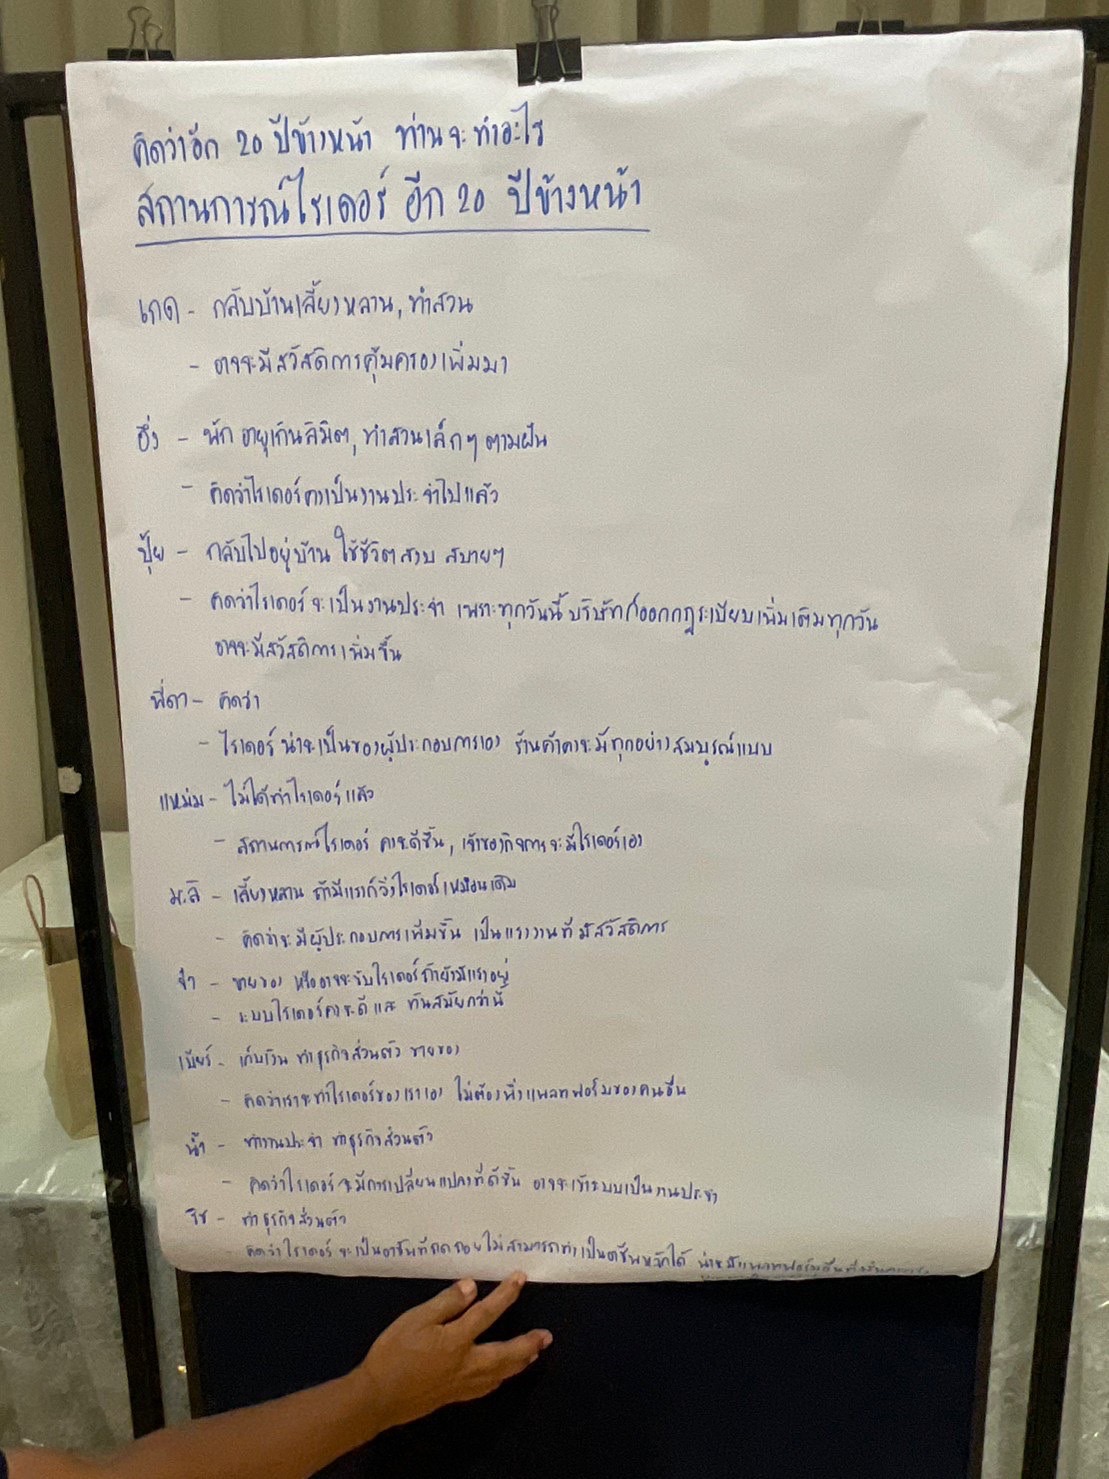 คิดว่าอีก 20 ปีข้างหน้า ท่านจะทำอะไร
สถานการณ์ไรเดอร์ อีก 20 ปีข้างหน้า
เกด - กลับบ้านเลี้ยงหลาน, ทำสวน
- อาจจะมีสวัสดิการคุ้มครองเพิ่มมา
อึ่ง - พัก อายุเกินลิมิต, ทำสวนเล็กๆ ตามฝัน
- คิดว่าไรเดอร์คงเป็นงานประจำไปแล้ว
ปุ้ย - กลับไปอยู่บ้าน ใช้ชีวิตสงบ สบายๆ
- คิดว่าไรเดอร์จะเป็นงานประจำ เพราะทุกวันนี้ บริษัทก็ออกกฎระเบียบเพิ่มเติมทุกวัน
อาจจะมีสวัสดิการเพิ่มขึ้น
พี่ดา - คิดว่า
- ไรเดอร์ น่าจะเป็นของผู้ประกอบการเอง ร้านค้าคงจะมีทุกอย่างสมบูรณ์แบบ
แหม่ม - ไม่ได้ทำไรเดอร์แล้ว
- สถานการณ์ไรเดอร์ คงจะดีขึ้น, เจ้าของกิจการจะมีไรเดอร์เอง
มะลิ - เลี้ยงหลาน ถ้ามีแรงก็วิ่งไรเดอร์เหมือนเดิม
- คิดว่าจะมีผู้ประกอบการเพิ่มขึ้น เป็นแรงงานที่มีสวัสดิการ
จ๋า - ขายของ หรืออาจจะขับไรเดอร์ถ้ายังมีแรงอยู่
- ระบบไรเดอร์คงจะดีและ ทันสมัยกว่านี้
เบียร์ - เก็บเงิน ทำธุรกิจส่วนตัว ขายของ
- คิดว่าเราจะทำไรเดอร์ของเราเอง ไม่ต้องพึ่งแพลทฟอร์มของคนอื่น
น้ำ - ทำงานประจำ ทำธุรกิจส่วนตัว
- คิดว่าไรเดอร์จะมีการเปลี่ยนแปลงที่ดีขึ้น อาจจะเข้าระบบเป็นงานประจำ
- ทำธุรกิจส่วนตัว
- คิดว่าไรเดอร์ จะเป็นอาชีพที่ถดถอยไม่สามารถทำเป็นอาชีพหลักได้